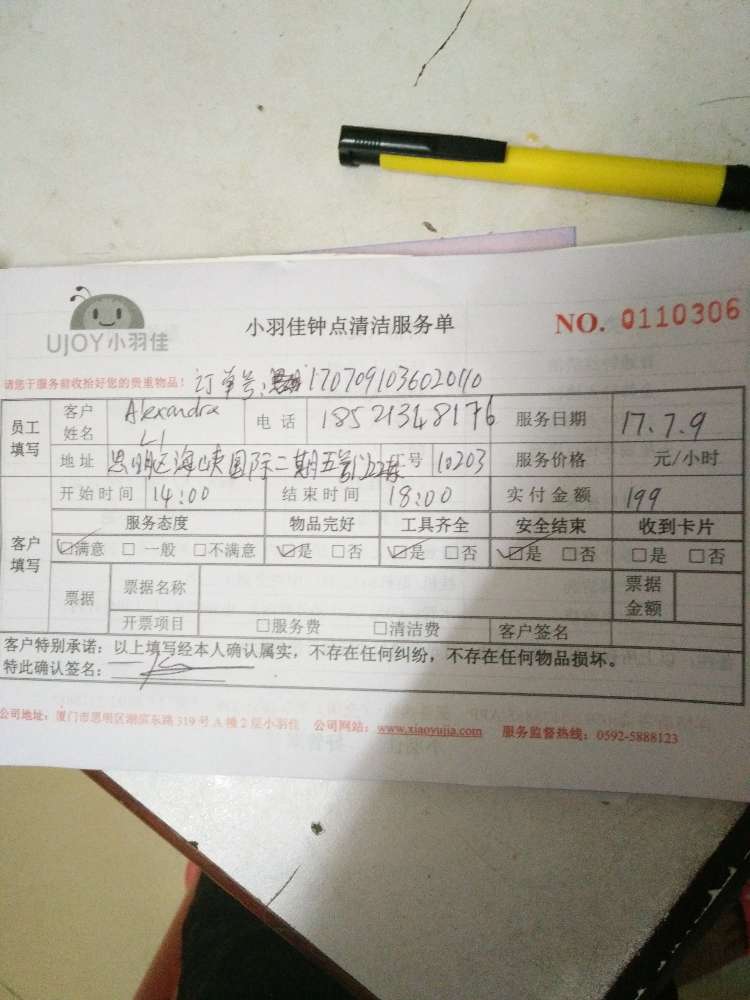 UJOY小羽佳
小羽佳钟点清洁服务单
NO. 0110306
请您于服务前收拾好您的贵重物品！ 订单号: 1707091036020110
员工填写 客户姓名 Alexandra Li 电话 18521348176 服务日期 17.7.9
地址 思明区海峡国际二期五号 号 10203 服务价格 元/小时
客户填写 开始时间 14:00 结束时间 18:00 实付金额 199
服务态度 物品完好 工具齐全 安全结束 收到卡片
☑满意 □一般 □不满意 ☑是 □否 ☑是 □否 ☑是 □否 □是 □否
票据 票据名称 票据金额
开票项目 □服务费 □清洁费 客户签名
客户特别承诺：以上填写经本人确认属实，不存在任何纠纷，不存在任何物品损坏。
特此确认签名：
公司地址：厦门市思明区湖滨东路319号A幢2层小羽佳 公司网站：www.xiaoyujia.com 服务监督热线：0592-5888123